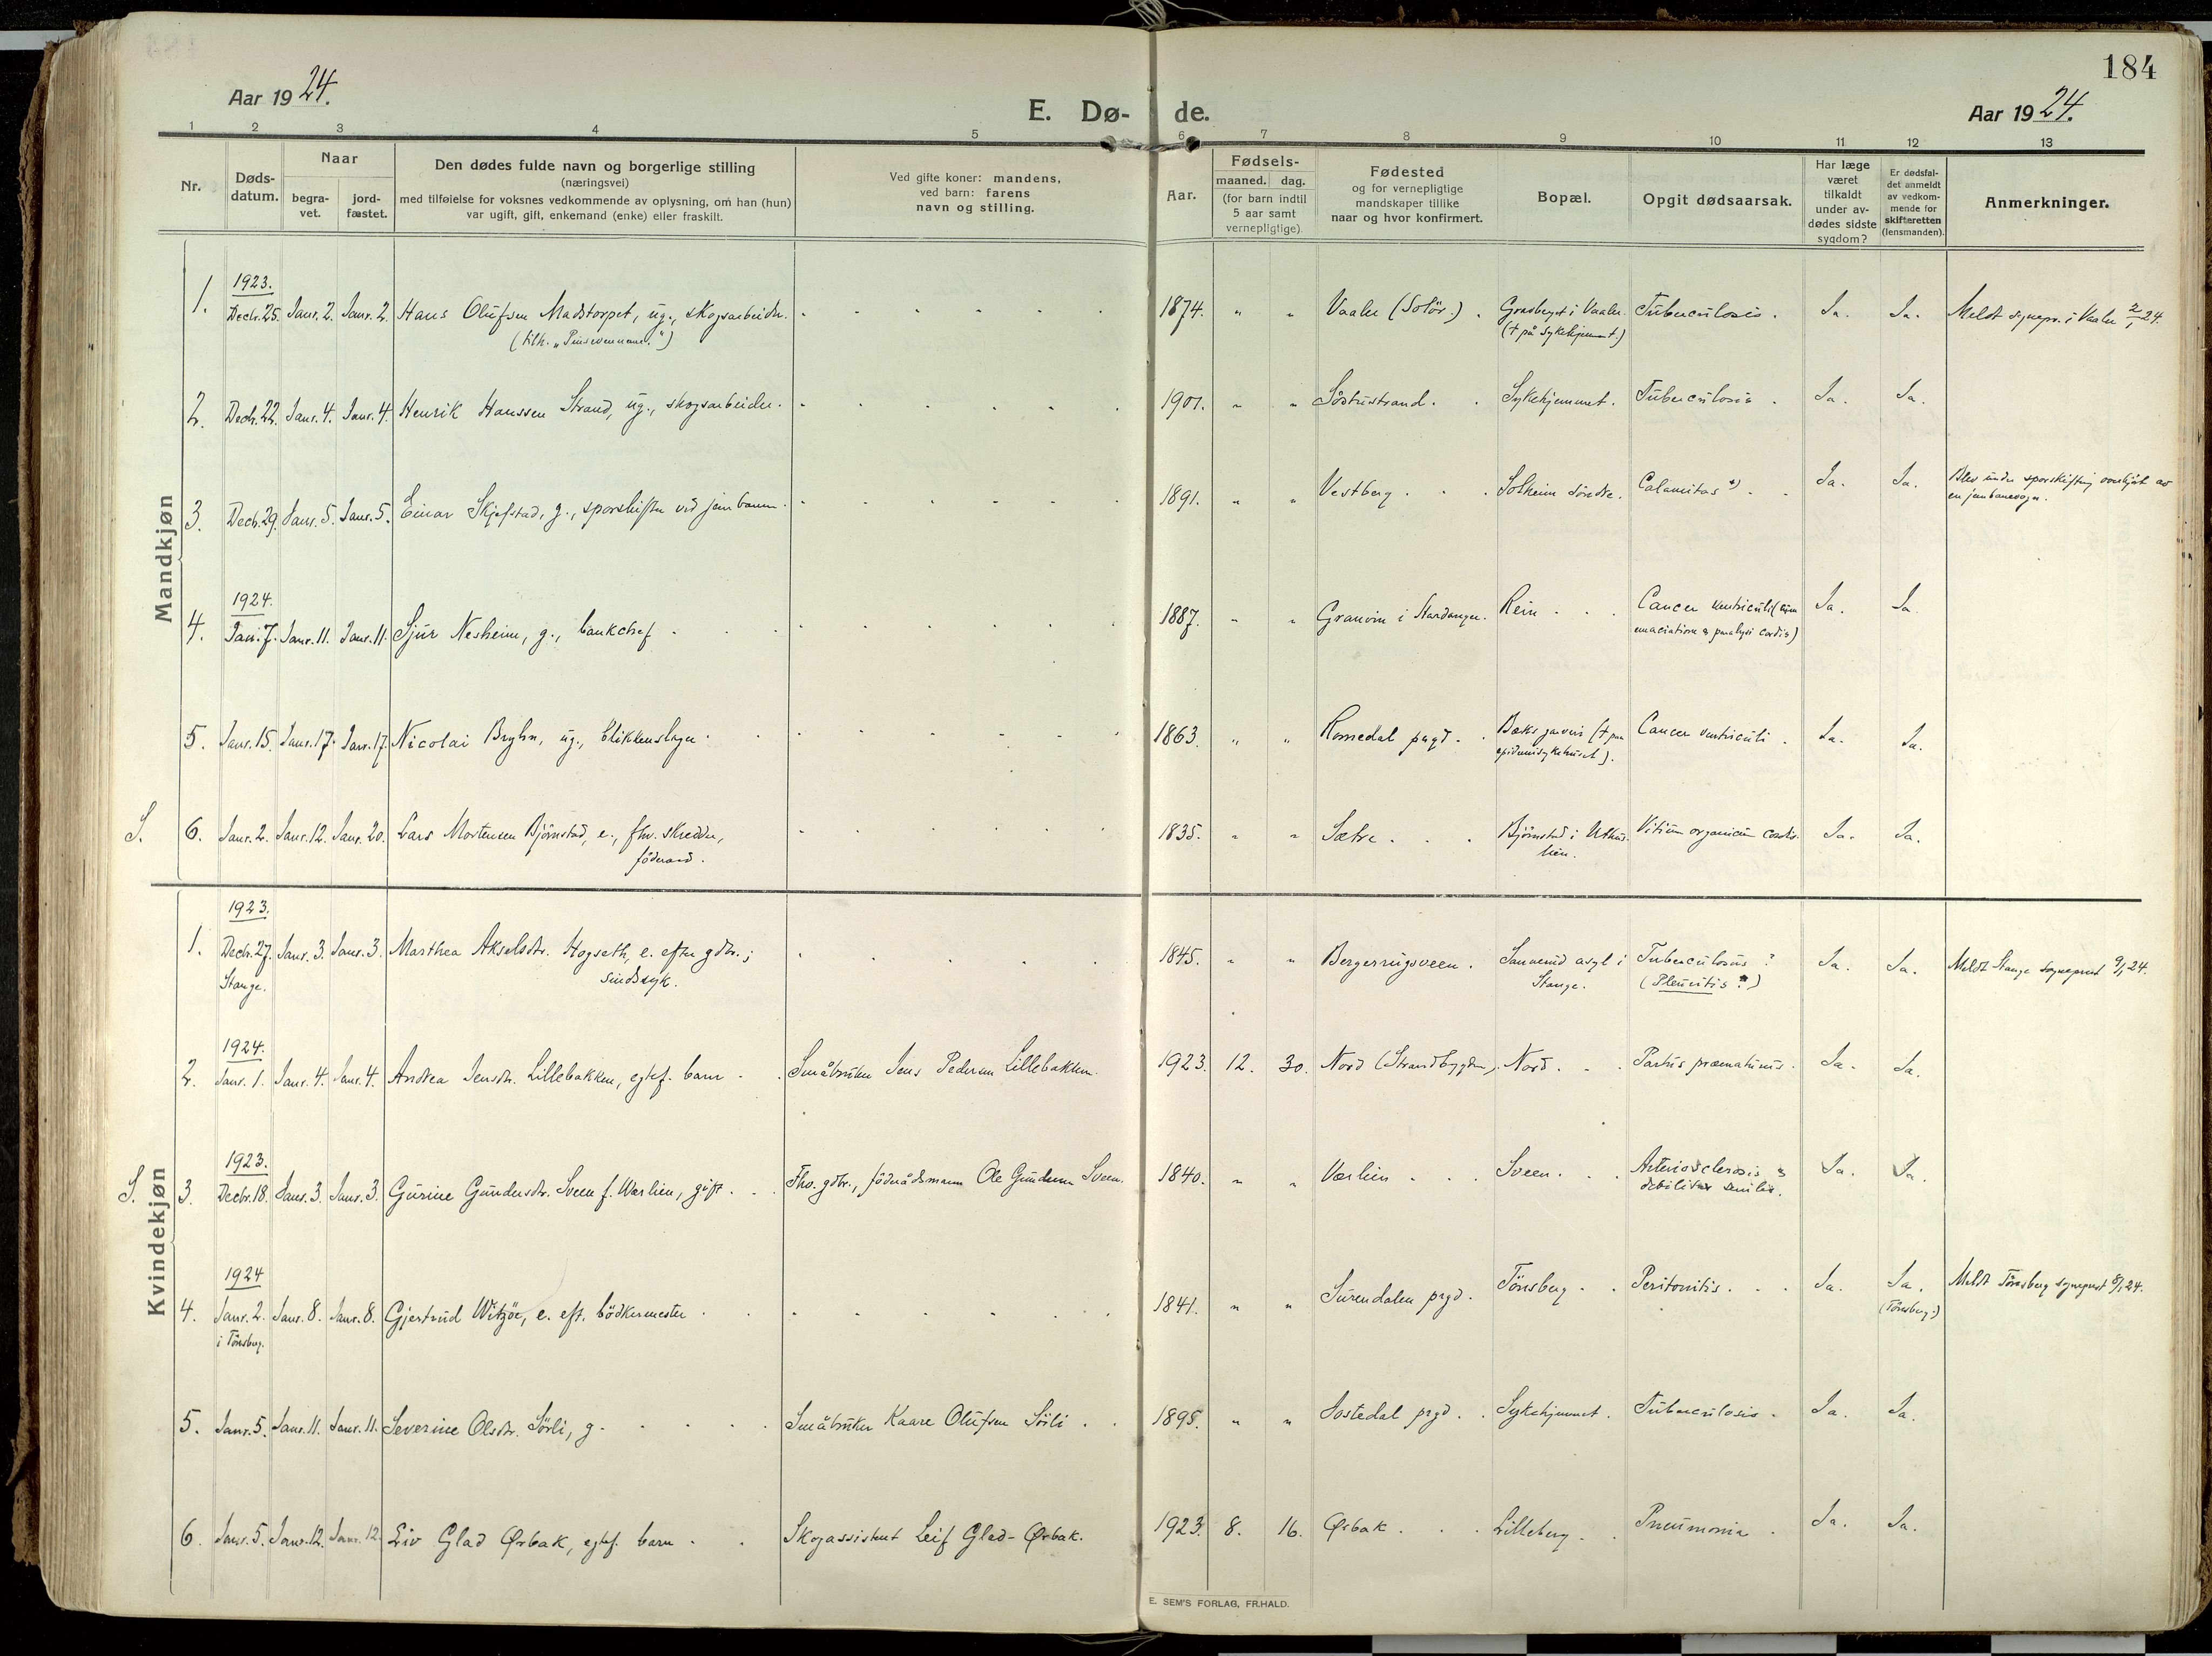 184
Aar 1924.
E. Dø- de.
Aar 1924.
1 2 3 4 5 6 7 8 9 10 11 12 13
Nr.
Døds-
datum.
Naar
begra-
vet.
jord-
fæstet.
Den dødes fulde navn og borgerlige stilling
(næringsvei)
med tilføielse for voksnes vedkommende av oplysning, om han (hun)
var ugift, gift, enkemand (enke) eller fraskilt.
Ved gifte koner: mandens,
ved barn: farens
navn og stilling.
Aar.
Fødsels-
maaned. dag.
(for barn indtil
5 aar samt
vernepligtige).
Fødested
og for vernepligtige
mandskaper tillike
naar og hvor konfirmert.
Bopæl.
Opgit dødsaarsak.
Har læge
været
tilkaldt
under av-
dødes sidste
sygdom?
Er dødsfal-
det anmeldt
av vedkom-
mende for
skifteretten
(lensmanden).
Anmerkninger.
Mandkjøn
1923.
1. Decbr. 25. Janr. 2. Janr. 2. Hans Olufsen Madstorpet, ug., skogsarbeider. 1874. " " Vaaler (Solör.). Grasberget i Vaaler. Tuberculosis. Ja. Ja. Meldt sognepr. i Vaaler 2/1 24.
(tilh. „Pinsevennene.")
(† på Sykehjemmet.)
2. Decbr. 22. Janr. 4. Janr. 4. Henrik Hanssen Strand, ug., skogsarbeider. 1901. " " Sörstustrand. Sykehjemmet. Tuberculosis. Ja. Ja.
3. Decbr. 29. Janr. 5. Janr. 5. Einar Skjefstad, g., sporskifter ved jernbanen. 1891. " " Vestberg. Solheim söndre. Calamitas *). Ja. Ja. Blev under sporskifting overkjört av
en jernbanevogn.
1924.
4. Janr. 7. Janr. 11. Janr. 11. Sjur Nesheim, g., bankchef. 1887. " " Granvin i Hardanger. Rein. Cancer ventriculi (cum Ja. Ja.
emaciatione & paralysi cordis)
5. Janr. 15. Janr. 17. Janr. 17. Nicolai Bryhn, ug., blikkenslager. 1863. " " Romedal prgd. († paa Cancer ventriculi. Ja. Ja.
epidemisykehuset).
S. 6. Janr. 2. Janr. 12. Janr. 20. Lars Mortensen Björnstad, e., fhv. skredder, 1835. " " Sætre. Björnstad i Uthus- Vitium organicum cordis. Ja. Ja.
föderaad.
lien.
Kvindekjøn
1923.
1. Decbr. 27. Janr. 3. Janr. 3. Marthea Akselsdtr. Hogseth, e. efter gdbr.; 1845. " " Bergerrugsveen. Sannerud asyl i Tuberculosis? Ja. Ja. Meldt Stange sogneprest 9/1 24.
Stange. sindssyk. Stange. (Pleuritis?)
1924.
2. Janr. 1. Janr. 4. Janr. 4. Andrea Jensdtr. Lillebakken, egtef. barn. Småbruker Jens Pedersen Lillebakken. 1923. 12. 30. Nord (Strandbygden). Nord. Partus præmaturus. Ja. Ja.
1923.
S. 3. Decbr. 18. Janr. 3. Janr. 3. Gurine Gundersdtr. Sveen f. Værlien, gift. Fhv. gdbr., föderådsmann Ole Gundersen Sveen. 1840. " " Værlien. Sveen. Arteriosclerosis & Ja. Ja.
debilitas senilis.
1924
4. Janr. 2. Janr. 8. Janr. 8. Gjertrud Witzöe, e. eft. bödkermester. 1841. " " Surendalen prgd. Tönsberg. Peritonitis. Ja. Ja. Meldt Tönsberg sogneprest 8/1 24.
i Tönsberg. (Tönsberg.)
5. Janr. 5. Janr. 11. Janr. 11. Severine Olsdtr. Sörli, g. Småbruker Kaare Olufsen Sörli. 1895. " " Jostedal prgd. Sykehjemmet. Tuberculosis. Ja. Ja.
6. Janr. 5. Janr. 12. Janr. 12. Liv Glad Ørbak, egtef. barn. Skogassistent Leif Glad-Ørbak. 1923. 8. 16. Ørbak. Lilleberg. Pneumonia. Ja. Ja.
E. SEM'S FORLAG, FR.HALD.